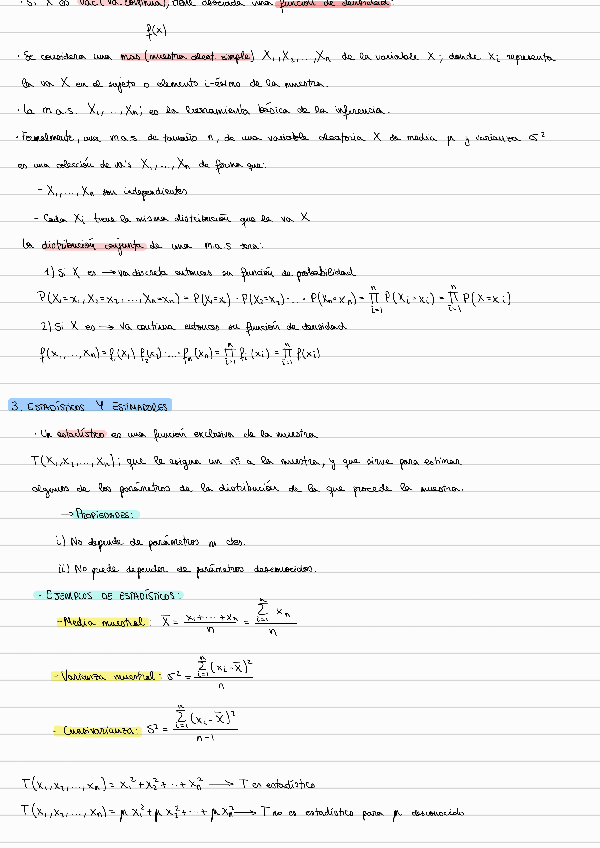 · Si X es vac (va. continua), tiene asociada una función de densidad:
f(x)
· Se considera una mas (muestra aleat. simple) X₁, X₂, ..., Xₙ de la variable X; donde Xᵢ representa
la va X en el sujeto o elemento i-ésimo de la muestra.
· La m.a.s. X₁, ..., Xₙ; es la herramienta básica de la inferencia.
· Formalmente, una m.a.s de tamaño n, de una variable aleatoria X de media μ y varianza σ²
es una colección de va's X₁, ..., Xₙ de forma que:
- X₁, ..., Xₙ son independientes
- Cada Xᵢ tiene la misma distribución que la va X
La distribución conjunta de una m.a.s será:
1) Si X es → va discreta entonces su función de probabilidad
P(X₁=x₁, X₂=x₂, ..., Xₙ=xₙ) = P(X₁=x₁) · P(X₂=x₂) · ... · P(Xₙ=xₙ) = ∏ⁿᵢ₌₁ P(Xᵢ=xᵢ) = ∏ⁿᵢ₌₁ P(X=xᵢ)
2) Si X es → va continua entonces su función de densidad
f(x₁, ..., xₙ) = f₁(x₁) f₂(x₂) · ... · fₙ(xₙ) = ∏ⁿᵢ₌₁ fᵢ(xᵢ) = ∏ⁿᵢ₌₁ f(xᵢ)
3. ESTADÍSTICOS Y ESTIMADORES
· Un estadístico es una función exclusiva de la muestra
T(X₁, X₂, ..., Xₙ); que le asigna un nº a la muestra, y que sirve para estimar
algunos de los parámetros de la distribución de la que procede la muestra.
→ PROPIEDADES:
i) No depende de parámetros ni ctes.
ii) No puede depender de parámetros desconocidos.
· EJEMPLOS DE ESTADÍSTICOS:
- Media muestral: X̄ = (x₁+...+xₙ)/n = (∑ⁿᵢ₌₁ xₙ)/n
- Varianza muestral: σ² = (∑ⁿᵢ₌₁ (xᵢ-X̄)²)/n
- Cuasivarianza: S² = (∑ⁿᵢ₌₁ (xᵢ-X̄)²)/(n-1)
T(x₁, x₂, ..., xₙ) = x₁² + x₂² + ... + xₙ² → T es estadístico
T(x₁, x₂, ..., xₙ) = μx₁² + μx₂² + ... + μxₙ² → T no es estadístico para μ desconocido